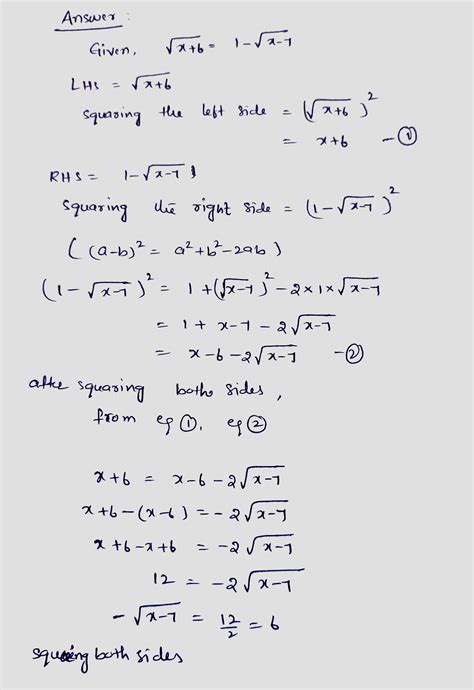 Answer :
Given, √x+6 = 1-√x-7
LHS = √x+6
squaring the left side = (√x+6)²
= x+6 -①
RHS = 1-√x-7
squaring the right side = (1-√x-7)²
((a-b)² = a²+b²-2ab)
(1-√x-7)² = 1+(√x-7)²-2×1×√x-7
= 1+x-7-2√x-7
= x-6-2√x-7 -②
after squaring both sides,
from eq ①, eq ②
x+6 = x-6-2√x-7
x+6-(x-6) = -2√x-7
x+6-x+6 = -2√x-7
12 = -2√x-7
-√x-7 = 12/2 = 6
squaring both sides